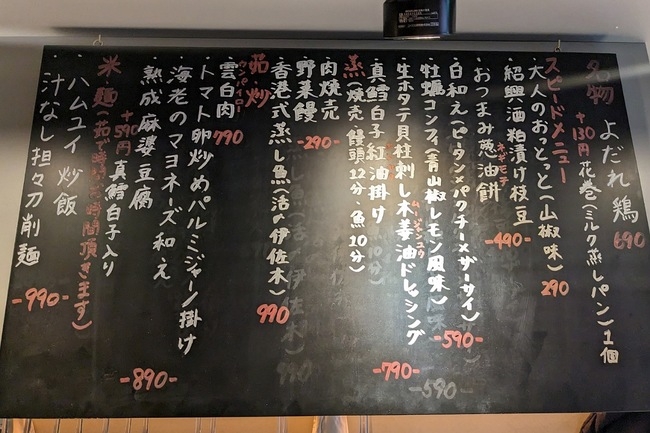 名物 よだれ鶏 690
+130円 花巻(ミルク蒸しパン)1個
スピードメニュー
大人のおっとっと(山椒味) 290
紹興酒粕漬け枝豆
おつまみ葱油餅 -490-
ネギモチ
白和え(ピータン×パクチー×ザーサイ)
牡蠣コンフィ(青山椒レモン風味) -590-
生ホタテ貝柱刺し木姜油ドレッシング -790-
ムージャンユ
真鱈白子紅油掛け
蒸 (焼売 饅頭12分、魚10分)
肉焼売
野菜饅 -290-
香港式蒸し魚(活の伊佐木) 990
茹 炒
雲白肉 790
ウンパイロー
トマト卵炒めパルミジャーノ掛け
海老のマヨネーズ和え
熟成麻婆豆腐 -890-
+590円 真鱈白子入り
米 麺 (茹で時間で時間頂きます)
ハムユイ炒飯
汁なし担々刀削麺 -990-